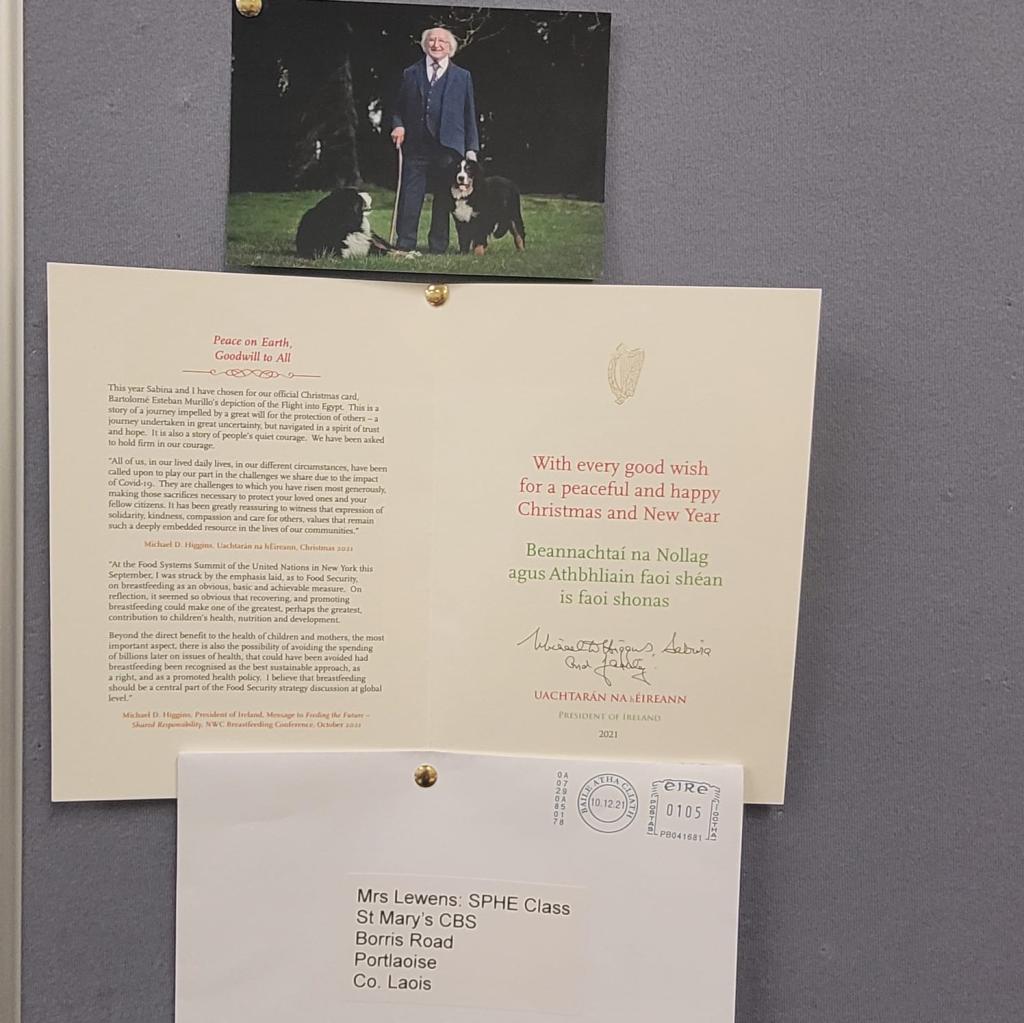 Peace on Earth,
Goodwill to All
This year Sabina and I have chosen for our official Christmas card,
Bartolomé Esteban Murillo's depiction of the Flight into Egypt. This is a
story of a journey impelled by a great will for the protection of others – a
journey undertaken in great uncertainty, but navigated in a spirit of trust
and hope. It is also a story of people's quiet courage. We have been asked
to hold firm in our courage.
"All of us, in our lived daily lives, in our different circumstances, have been
called upon to play our part in the challenges we share due to the impact
of Covid-19. They are challenges to which you have risen most generously,
making those sacrifices necessary to protect your loved ones and your
fellow citizens. It has been greatly reassuring to witness that expression of
solidarity, kindness, compassion and care for others, values that remain
such a deeply embedded resource in the lives of our communities."
Michael D. Higgins, Uachtarán na hÉireann, Christmas 2021
"At the Food Systems Summit of the United Nations in New York this
September, I was struck by the emphasis laid, as to Food Security,
on breastfeeding as an obvious, basic and achievable measure. On
reflection, it seemed so obvious that recovering, and promoting
breastfeeding could make one of the greatest, perhaps the greatest,
contribution to children's health, nutrition and development.
Beyond the direct benefit to the health of children and mothers, the most
important aspect, there is also the possibility of avoiding the spending
of billions later on issues of health, that could have been avoided had
breastfeeding been recognised as the best sustainable approach, as
a right, and as a promoted health policy. I believe that breastfeeding
should be a central part of the Food Security strategy discussion at global
level."
Michael D. Higgins, President of Ireland, Message to Feeding the Future –
Shared Responsibility, NWC Breastfeeding Conference, October 2021
With every good wish
for a peaceful and happy
Christmas and New Year
Beannachtaí na Nollag
agus Athbhliain faoi shéan
is faoi shonas
Michael D Higgins, Sabina
and family
UACHTARÁN NA hÉIREANN
PRESIDENT OF IRELAND
2021
0A
07
29
0A
85
01
78
BAILE ÁTHA CLIATH
10.12.21
eIRe
POSTAS
0105
ÍOCTHA
PB041681
Mrs Lewens: SPHE Class
St Mary's CBS
Borris Road
Portlaoise
Co. Laois